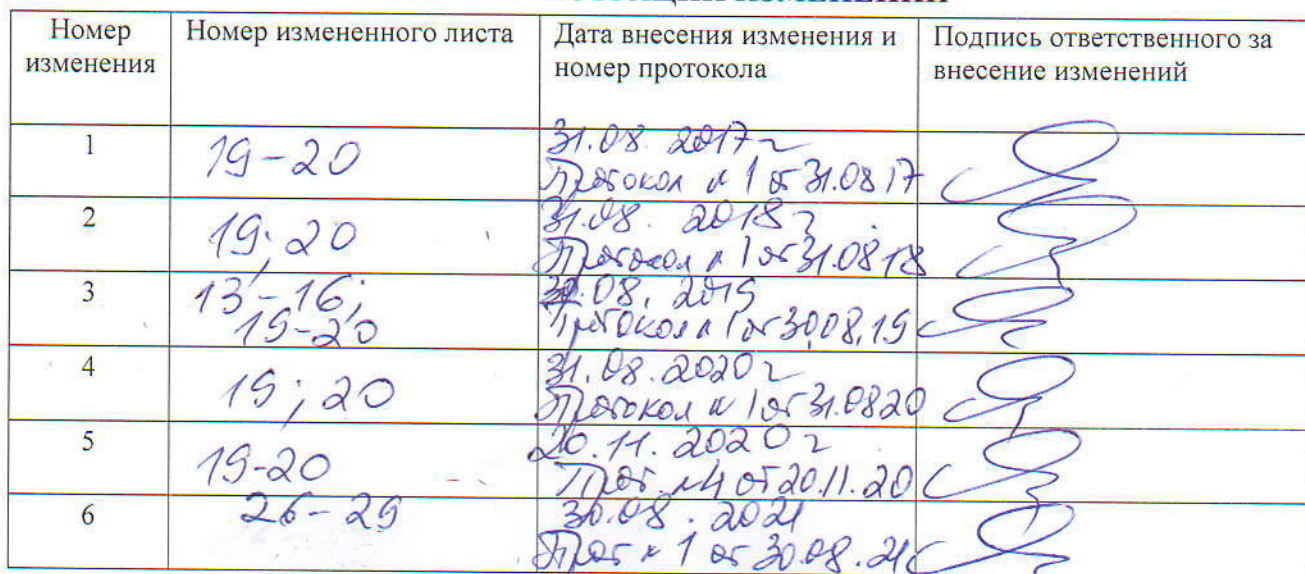 Номер изменения
Номер измененного листа
Дата внесения изменения и номер протокола
Подпись ответственного за внесение изменений
1
19-20
31.08. 2017 г
Протокол № 1 от 31.08 17
2
19; 20
31.08. 2018 г.
Протокол № 1 от 31.08 18
3
13-16;
19-20
30.08. 2019
Протокол № 1 от 30.08.19
4
19; 20
31.08.2020 г
Протокол № 1 от 31.08 20
5
19-20
20.11. 2020 г
Прот. №4 от 20.11.20
6
26-29
30.08. 2021
Прот № 1 от 30.08.21